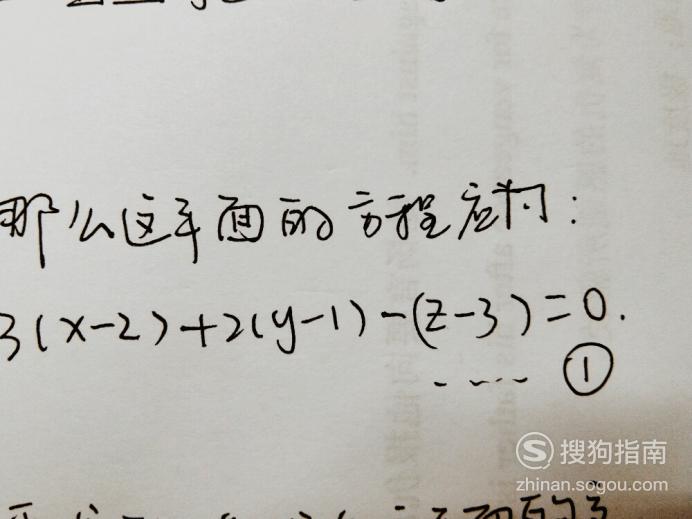 那么这平面的方程应为:
3(x-2)+2(y-1)-(z-3)=0.
---- ①
搜狗指南
zhinan.sogou.com